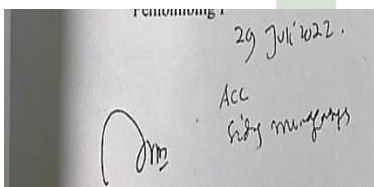 Pembimbing I
29 Juli 2022.
ACC
Sidg munaqasys